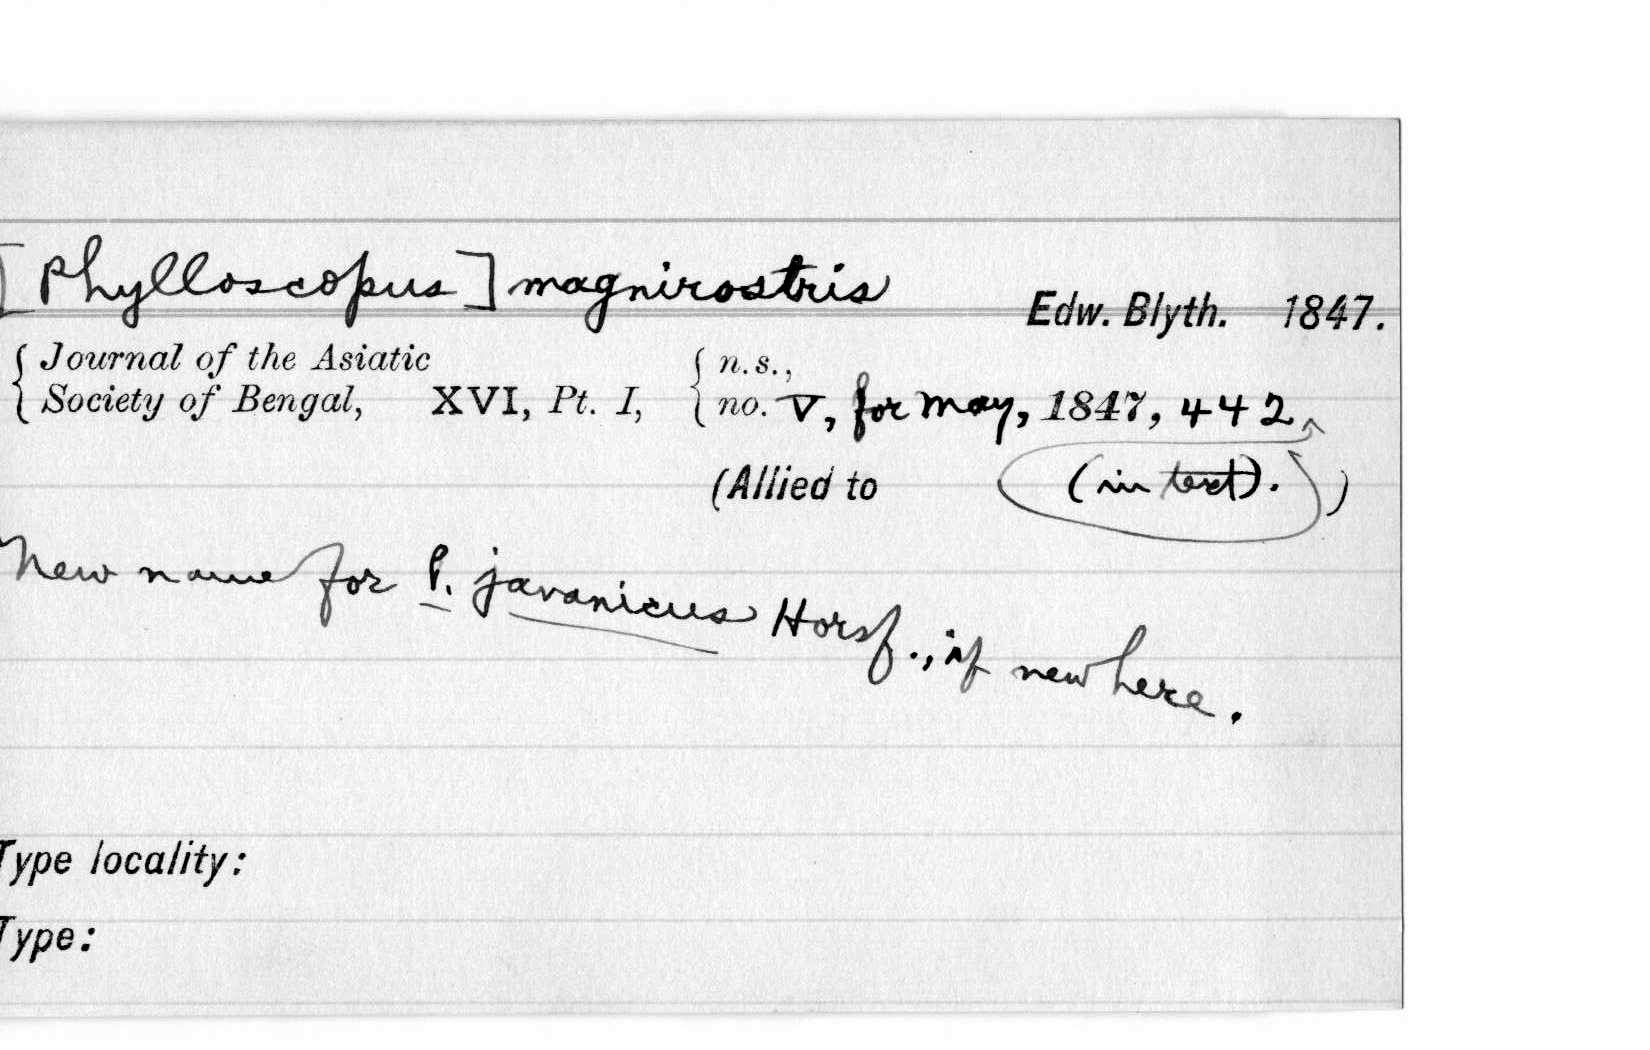 [Phylloscopus] magnirostris Edw. Blyth. 1847.
Journal of the Asiatic n.s.,
Society of Bengal, XVI, Pt. I, no. V, for May, 1847, 442
(Allied to (in text). )
New name for P. javanicus Horsf., if new here.
Type locality:
Type: